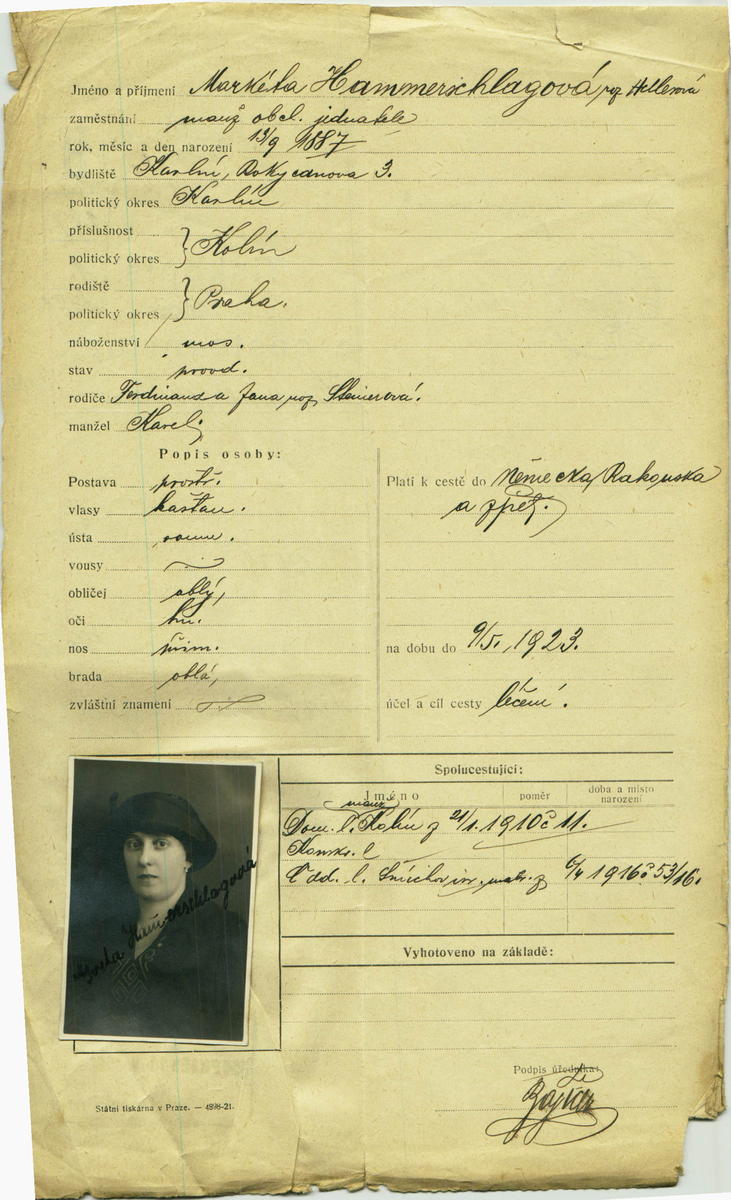 Jméno a příjmení Markéta Hammerschlagová roz. Hellerová
zaměstnání manž. obch. jednatele
rok, měsíc a den narození 13/9 1887
bydliště Karlín, Rokycanova 3.
politický okres Karlín
příslušnost
politický okres } Kolín
rodiště
politický okres } Praha.
náboženství mos.
stav provd.
rodiče Ferdinand a Jana roz. Steinerová.
manžel Karel
Popis osoby:
Postava prostř.
vlasy kaštan.
ústa soum.
vousy
obličej oblý,
oči hn.
nos přim.
brada oblá,
zvláštní znamení
Platí k cestě do Německa, Rakouska
a zpět.
na dobu do 9/5. 1923.
účel a cíl cesty léčení.
Spolucestující:
Jméno poměr doba a místo narození
manž.
Dom. l. Kolín z 21/1. 1910 č 11.
Konskr. l
Odd. l. Smíchov isr. matr. z 6/4 1916 č 53/16.
Vyhotoveno na základě:
Hammerschlagová
Podpis úředníka:
Státní tiskárna v Praze. — 4898-21.